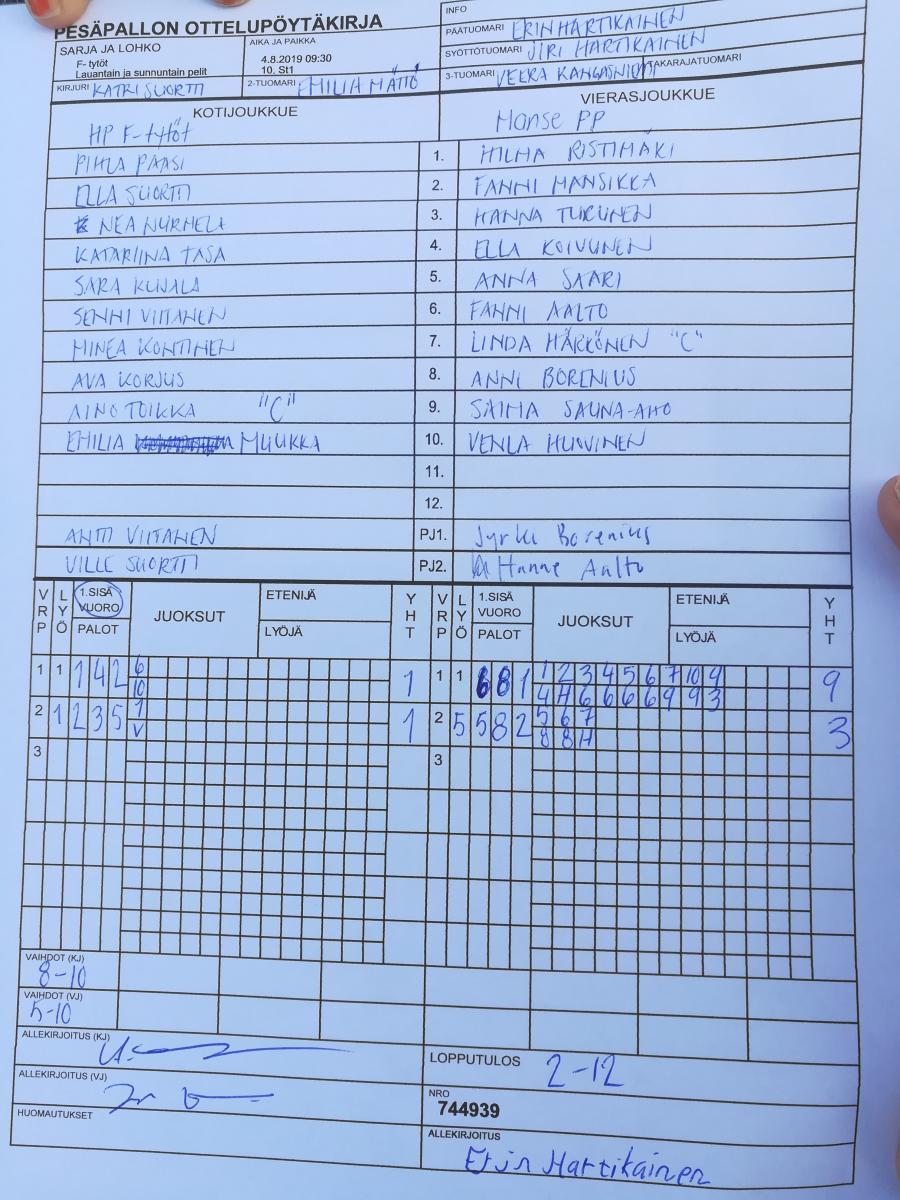 PESÄPALLON OTTELUPÖYTÄKIRJA
INFO
SARJA JA LOHKO
F- tytöt
Lauantain ja sunnuntain pelit
AIKA JA PAIKKA
4.8.2019 09:30
10. St1
PÄÄTUOMARI ERIN HARTIKAINEN
SYÖTTÖTUOMARI JIRI HARTIKAINEN
KIRJURI KATRI SUORTTI
2-TUOMARI EMILIA MÄTTÖ
3-TUOMARI VEERA KANGASNIEMI TAKARAJATUOMARI
KOTIJOUKKUE VIERASJOUKKUE
HP F-tytöt Manse PP
PIHLA PAASI 1. HILMA RISTIMÄKI
ELLA SUORTTI 2. FANNI MANSIKKA
NEA NURMELA 3. HANNA TURUNEN
KATARIINA TASA 4. ELLA KOIVUNEN
SARA KUJALA 5. ANNA SAARI
SENNI VIITANEN 6. FANNI AALTO
MINEA KONTINEN 7. LINDA HÄRKÖNEN "C"
AVA KORJUS 8. ANNI BORENIUS
AINO TOIKKA "C" 9. SAIMA SAUNA-AHO
EMILIA MUUKKA 10. VENLA HUOVINEN
11.
12.
ANTTI VIITANEN PJ1. Jyrki Borenius
VILLE SUORTTI PJ2. Hanne Aalto
VRP LYÖ 1.SISÄ VUORO PALOT JUOKSUT ETENIJÄ LYÖJÄ YHT VRP LYÖ 1.SISÄ VUORO PALOT JUOKSUT ETENIJÄ LYÖJÄ YHT
1 1 1 4 2 6 1 1 1 6 8 1 1 2 3 4 5 6 7 10 9 9
10 4 H 6 6 6 6 9 9 3
2 1 2 3 5 1 1 2 5 5 8 2 5 6 7 3
V 8 8 H
3 3
VAIHDOT (KJ)
8-10
VAIHDOT (VJ)
5-10
ALLEKIRJOITUS (KJ)
LOPPUTULOS 2-12
ALLEKIRJOITUS (VJ)
NRO
744939
HUOMAUTUKSET
ALLEKIRJOITUS
Erin Hartikainen